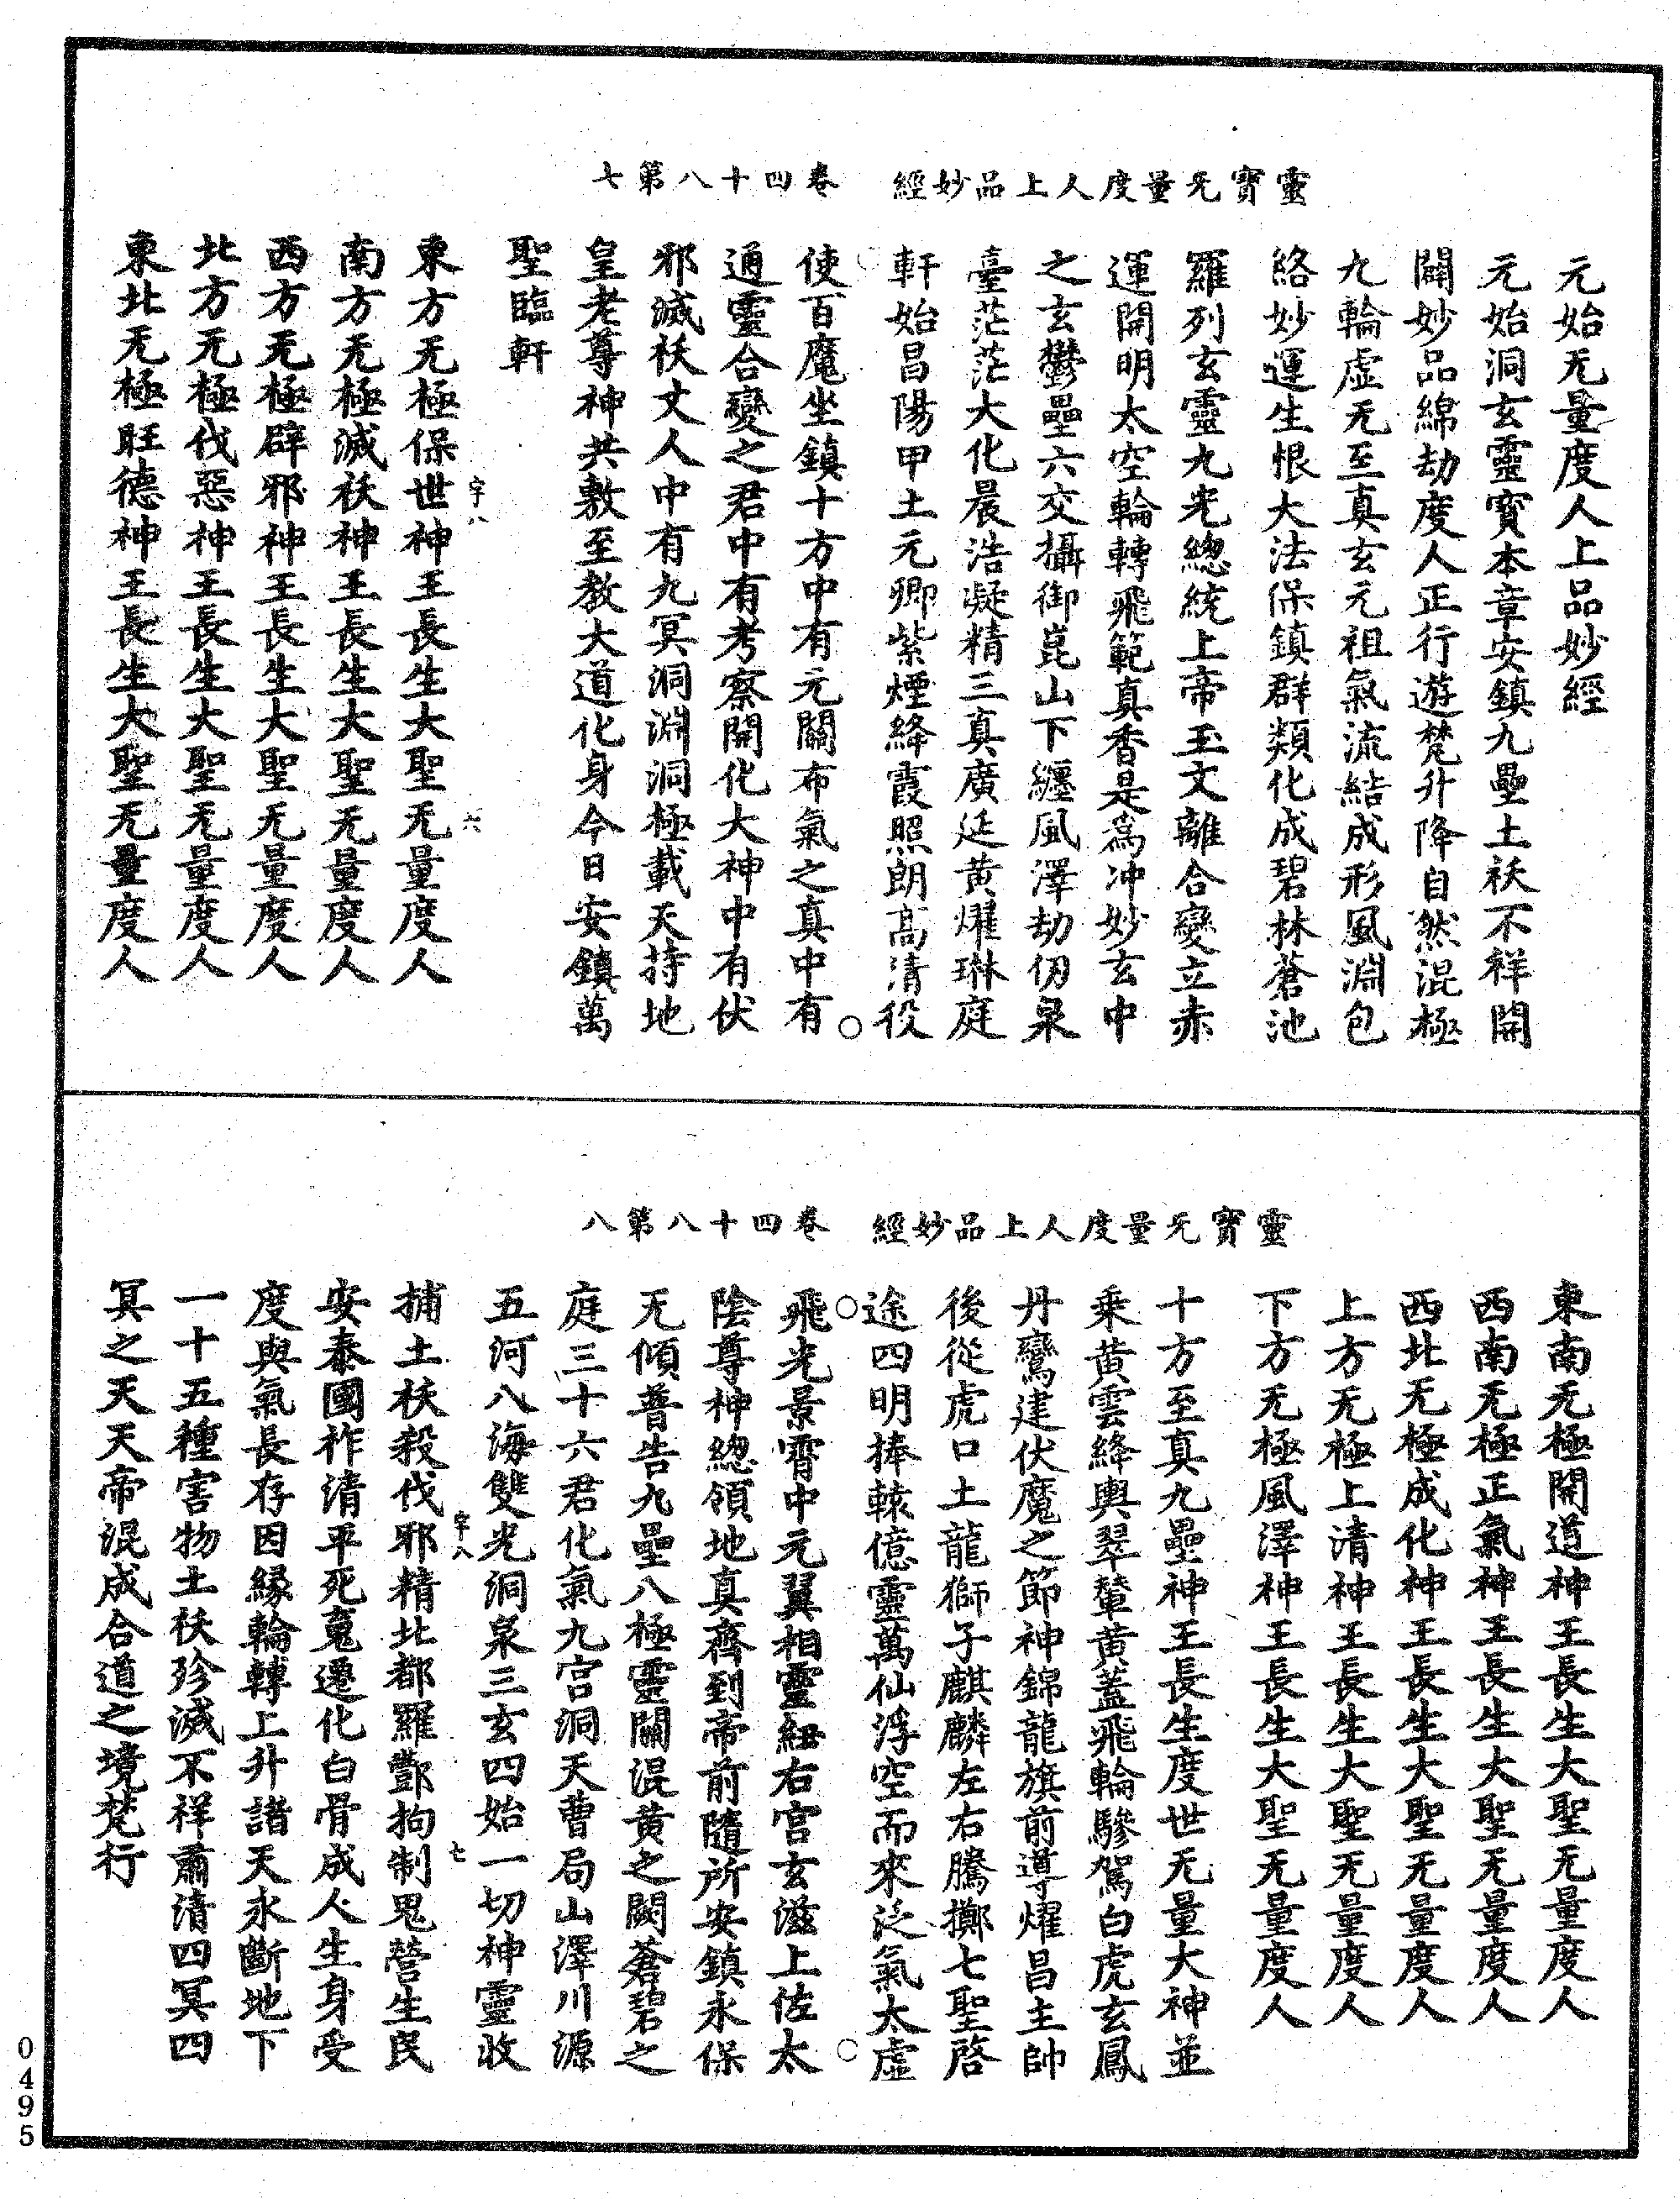 靈寶无量度人上品妙經　卷四十八第七
元始无量度人上品妙經
元始洞玄靈寶本章安鎮九壘土祅不祥開
闢妙品綿劫度人正行遊梵升降自然混極
九輪虛无至真玄元祖氣流結成形風淵包
絡妙運生恨大法保鎮群類化成碧林蒼池
羅列玄靈九光總統上帝玉文離合變立赤
運開明太空輪轉飛範真香是為冲妙玄中
之玄鬱壘六交攝御崑山下纏風澤劫仞泉
臺茫茫大化晨浩凝精三真廣延黄燿琳庭
軒始昌陽甲土元卿紫煙絳霞照朗高清役
使百魔坐鎮十方中有元關布氣之真中有
通靈合變之君中有考察開化大神中有伏
邪滅祅丈人中有九冥洞淵洞極載天持地
皇老尊神共敷至教大道化身今日安鎮萬
聖臨軒
東方无極保世神王長生大聖无量度人
字八　六
南方无極滅祅神王長生大聖无量度人
西方无極辟邪神王長生大聖无量度人
北方无極伐惡神王長生大聖无量度人
東北无極旺德神王長生大聖无量度人
靈寶无量度人上品妙經　卷四十八第八
東南无極開道神王長生大聖无量度人
西南无極正氣神王長生大聖无量度人
西北无極成化神王長生大聖无量度人
上方无極上清神王長生大聖无量度人
下方无極風澤神王長生大聖无量度人
十方至真九壘神王長生度世无量大神並
乘黄雲絳輿翠輦黄蓋飛輪驂駕白虎玄鳳
丹鸞建伏魔之節神錦龍旗前導燿昌主帥
後從虎口土龍獅子麒麟左右騰擲七聖啓
途四明捧轅億靈萬仙浮空而來泛氣太虛
飛光景霄中元翼相靈紐右宫玄滋上佐太
陰尊神總領地真齊到帝前隨所安鎮永保
无傾普告九壘八極靈關混黄之闕蒼碧之
庭三十六君化氣九宫洞天曹局山澤川源
五河八海雙光洞泉三玄四始一切神靈收
字八　七
捕土祅殺伐邪精北都羅酆拘制鬼營生民
安泰國祚清平死䰟遷化白骨成人生身受
度與氣長存因緣輪轉上升諧天永斷地下
一十五種害物土祅殄滅不祥肅清四冥四
冥之天天帝混成合道之境梵行
0495